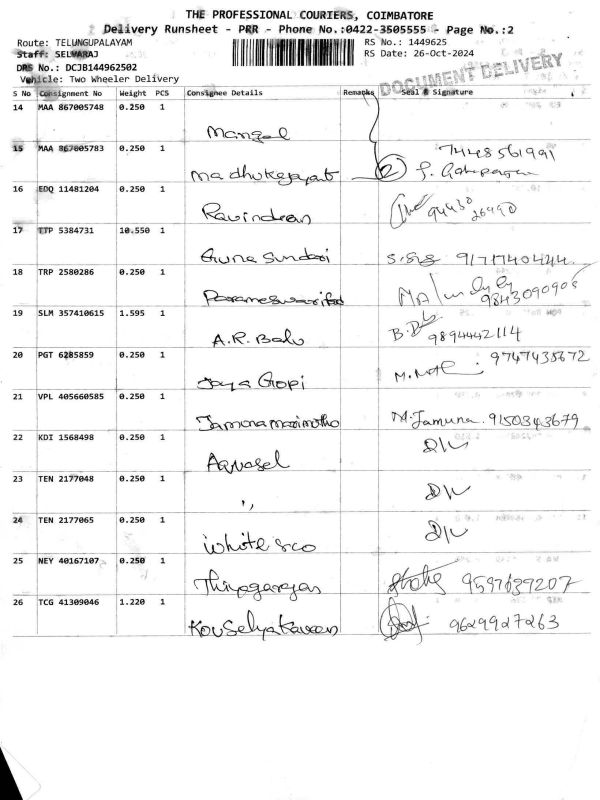 THE PROFESSIONAL COURIERS, COIMBATORE
Delivery Runsheet - PRR - Phone No.:0422-3505555 - Page No.:2
Route: TELUNGUPALAYAM RS No.: 1449625
Staff: SELVARAJ RS Date: 26-Oct-2024
DRS No.: DCJB144962502
Vehicle: Two Wheeler Delivery
DOCUMENT DELIVERY
S No Consignment No Weight PCS Consignee Details Remarks Seal & Signature
14 MAA 867005748 0.250 1
Mangal
15 MAA 867005783 0.250 1 7448561991
2
16 EDQ 11481204 0.250 1
Ravindran 94430 26990
17 TTP 5384731 10.550 1
Guna Sundari 9171740444
18 TRP 2580286 0.250 1
9843090905
19 SLM 357410615 1.595 1
A.R. Balu 9894442114
20 PGT 6285859 0.250 1 9747435672
Jaya Gopi
21 VPL 405660585 0.250 1
M. Jamuna. 9150343679
22 KDI 1568498 0.250 1
Aquasel D/L
23 TEN 2177048 0.250 1
,, D/L
24 TEN 2177065 0.250 1
White sco D/L
25 NEY 40167107 0.250 1
Thiyagarajan 9597639207
26 TCG 41309046 1.220 1
9629927263